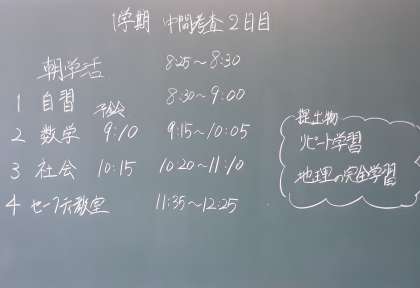 1学期 中間考査 2日目
朝学活 8:25～8:30
1 自習 8:30～9:00
予鈴
2 数学 9:10 9:15～10:05
3 社会 10:15 10:20～11:10
4 セーフティ教室 11:35～12:25
提出物
リピート学習
地理の完全学習